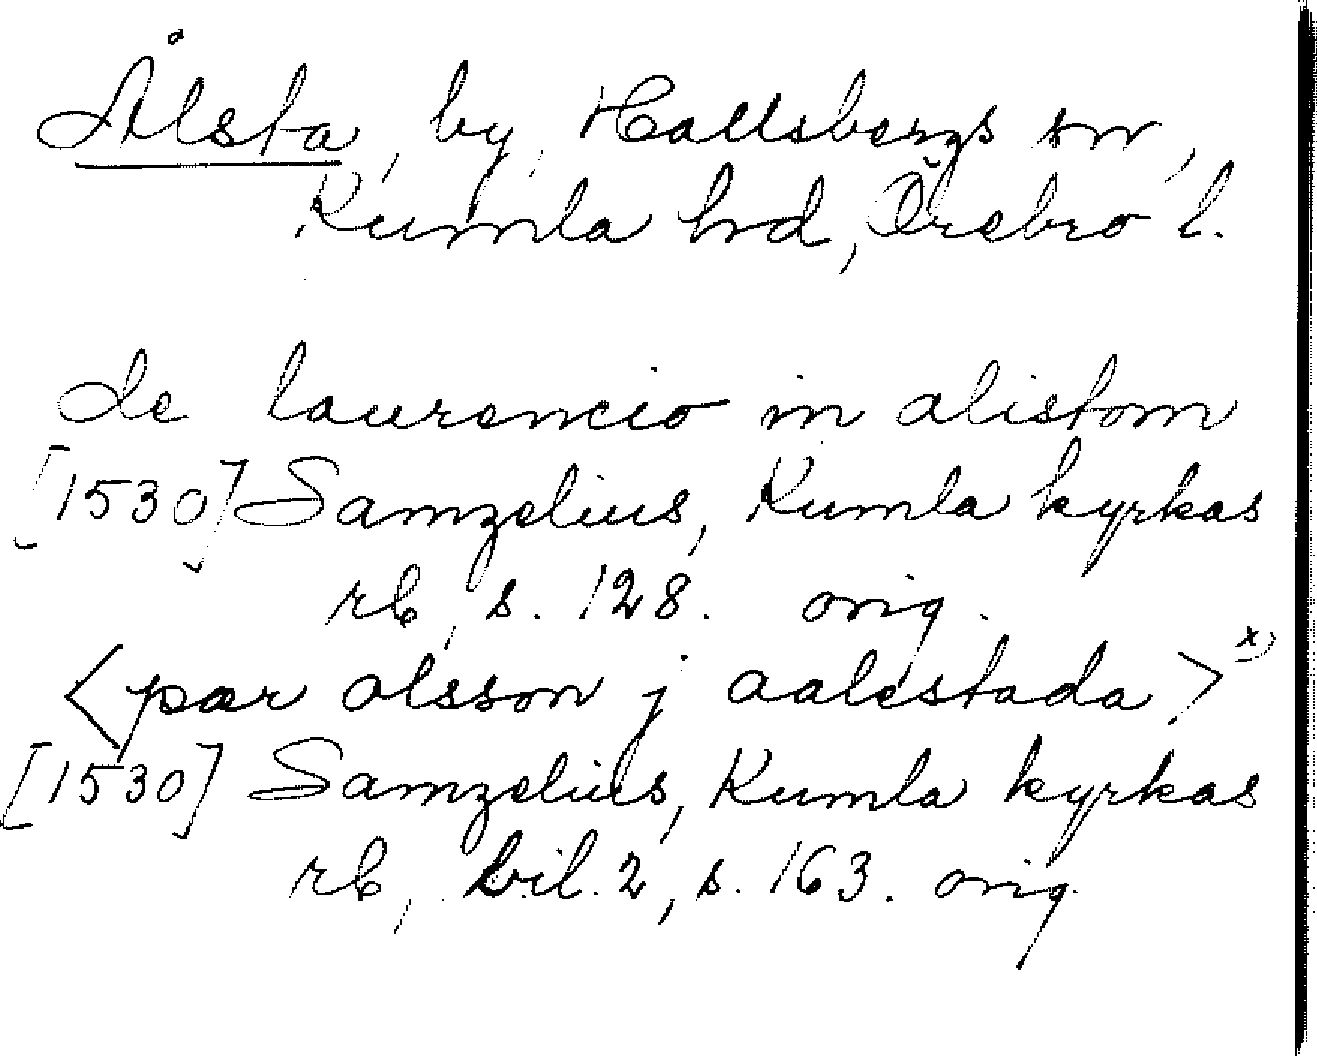 Ålsta, by, Hallsbergs sn,
Kumla hd, Örebro l.
de laurencio in alistom
[1530] Samzelius, Kumla kyrkas
rb, s. 128. orig.
<par olsson j aalestada>x)
[1530] Samzelius, Kumla kyrkas
rb, bil. 2, s. 163. orig.